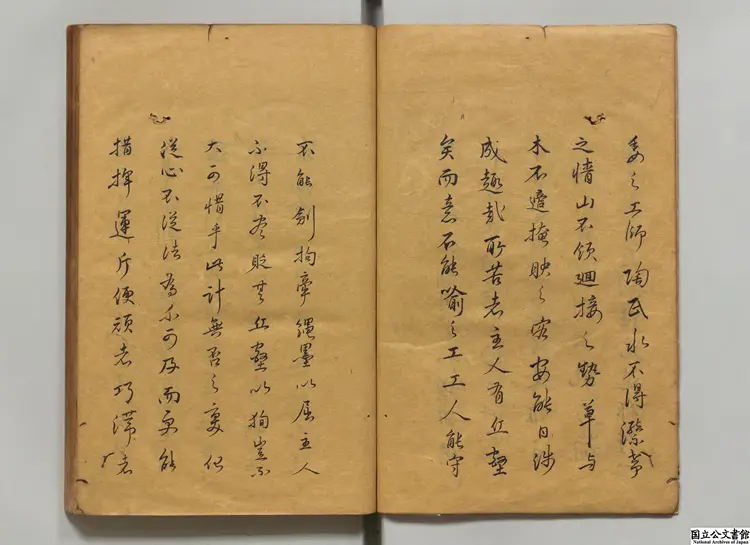 委之工師陶氏水不得瀠帶
之情山不領廻接之勢草與
木不適掩映之容安能日涉
成趣哉所苦者主人有丘壑
矣而意不能喻之工工人能守
不能創拘牽繩墨以屈主人
不得不盡貶其丘壑以狥豈不
大可惜乎此計無否之變化
從心不從法為不可及而更能
指揮運斤使頑者巧滯者
国立公文書館
National Archives of Japan